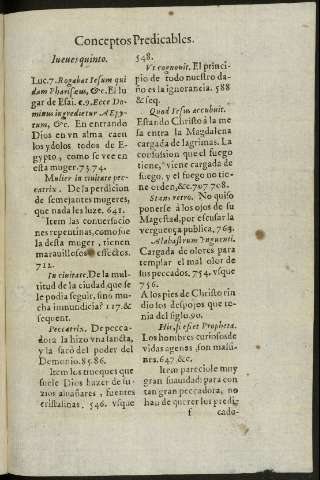 Conceptos Predicables.
Iueues quinto.
Luc.7. Rogabat Iesum qui
dam Phariseus, &c. El lu
gar de Esai. c.9. Ecce Do-
minus ingredietur AEgy-
tum, &c. En entrando
Dios en vn alma caen
los ydolos todos de E-
gypto, como se vee en
esta muger. 73. 74.
Mulier in ciuitate pec-
catrix. De la perdicion
de semejantes mugeres,
que nada les luze. 641.
Item las conuersacio
nes repentinas, como fue
la desta muger, tienen
marauillosos effectos.
712.
In ciuitate. De la mul-
titud de la ciudad, que se
le podia seguir, sino mu-
cha inmundicia? 117. &
sequent.
Peccatrix. De pecca-
dora la hizo vna sancta,
y la sacò del poder del
Demonio. 85. 86.
Item los trueques que
suele Dios hazer de su-
zios albañares, fuentes
cristalinas. 546. vsque
548.
Vt cognouit. El princi-
pio de todo nuestro da-
ño es la ignorancia. 588
& seq.
Quod Iesus accubuit.
Estando Christo à la me
sa entra la Magdalena
cargada de lagrimas. La
confusion que el fuego
tiene, viene cargada de
fuego, y el fuego no tie-
ne orden, &c. 707. 708.
Stans retro. No quiso
ponerse à los ojos de su
Magestad, por escusar la
verguença publica, 763.
Alabastrum Vnguenti.
Cargada de olores para
templar el mal olor de
sus peccados. 754. vsque
756.
A los pies de Christo rin
dio los despojos que te-
nia del siglo. 90.
Hic, si esset Propheta.
Los hombres curiosos de
vidas agenas, son malis-
nos. 647. &c.
Item pareciole muy
gran suauidad: para con
tan gran peccadora, no
han de querer los predig
f cado-